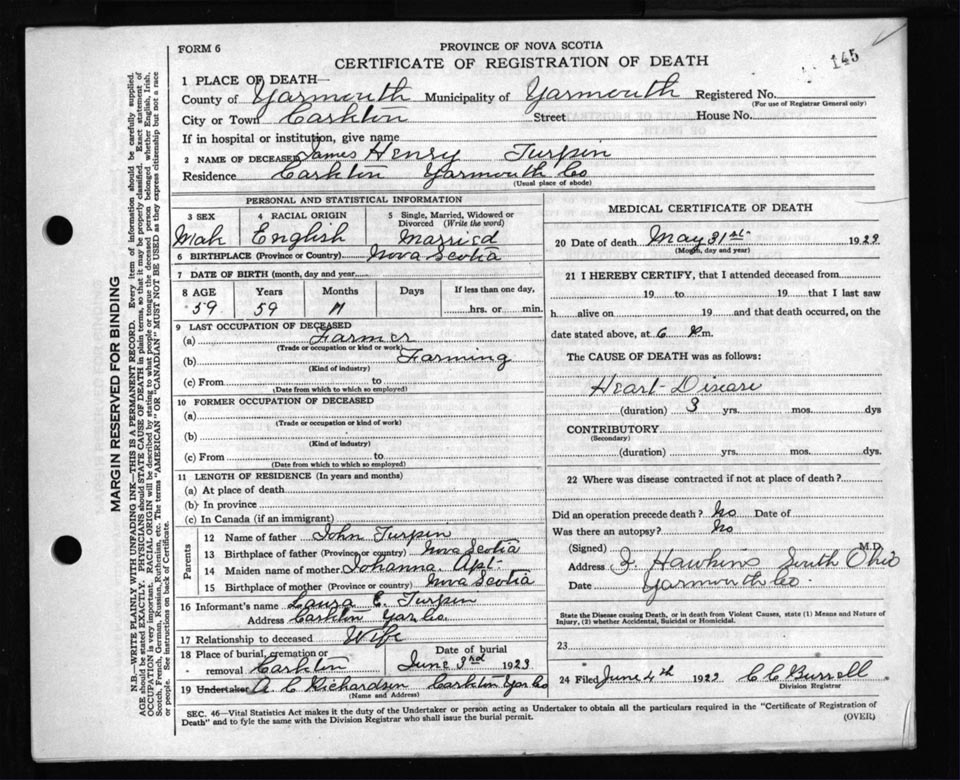 145
FORM 6
PROVINCE OF NOVA SCOTIA
CERTIFICATE OF REGISTRATION OF DEATH
1 PLACE OF DEATH—
County of Yarmouth Municipality of Yarmouth Registered No.
(For use of Registrar General only)
City or Town Carleton Street House No.
If in hospital or institution, give name
2 NAME OF DECEASED James Henry Turpin
Residence Carleton Yarmouth Co
(Usual place of abode)
PERSONAL AND STATISTICAL INFORMATION
3 SEX Male
4 RACIAL ORIGIN English
5 Single, Married, Widowed or Divorced (Write the word) Married
6 BIRTHPLACE (Province or Country) Nova Scotia
7 DATE OF BIRTH (month, day and year
8 AGE Years Months Days If less than one day,
59 59 hrs. or min.
9 LAST OCCUPATION OF DECEASED
(a) Farmer
(Trade or occupation or kind of work)
(b) Farming
(Kind of industry)
(c) From to
(Date from which to which so employed)
10 FORMER OCCUPATION OF DECEASED
(a)
(Trade or occupation or kind of work)
(b)
(Kind of industry)
(c) From to
(Date from which to which so employed)
11 LENGTH OF RESIDENCE (In years and months)
(a) At place of death
(b) In province
(c) In Canada (if an immigrant)
Parents
12 Name of father John Turpin
13 Birthplace of father (Province or country) Nova Scotia
14 Maiden name of mother Johanna Apt
15 Birthplace of mother (Province or country) Nova Scotia
16 Informant's name Laura E. Turpin
Address Carleton Yar Co.
17 Relationship to deceased Wife
18 Place of burial, cremation or removal Carleton
Date of burial June 3rd 1923
19 Undertaker A. C Richardson Carleton Yar Co
(Name and Address)
MEDICAL CERTIFICATE OF DEATH
20 Date of death May 31st 1923
(Month, day and year)
21 I HEREBY CERTIFY, that I attended deceased from
19 to 19 that I last saw
h alive on 19 and that death occurred, on the
date stated above, at 6 m.
The CAUSE OF DEATH was as follows:
Heart-Disease
(duration) 3 yrs. mos. dys
CONTRIBUTORY
(Secondary)
(duration) yrs. mos. dys.
22 Where was disease contracted if not at place of death?
Did an operation precede death? No Date of
Was there an autopsy? No
(Signed) M.D.
Address Hawkins South Ohio
Date Yarmouth Co.
State the Disease causing Death, or in death from Violent Causes, state (1) Means and Nature of
Injury, (2) whether Accidental, Suicidal or Homicidal.
23
24 Filed June 4th 1923 C C Burrell
Division Registrar
SEC. 46—Vital Statistics Act makes it the duty of the Undertaker or person acting as Undertaker to obtain all the particulars required in the "Certificate of Registration of
Death" and to fyle the same with the Division Registrar who shall issue the burial permit.
(OVER)
MARGIN RESERVED FOR BINDING
N.B.—WRITE PLAINLY WITH UNFADING INK—THIS IS A PERMANENT RECORD. Every item of information should be carefully supplied.
AGE should be stated EXACTLY. PHYSICIANS should STATE CAUSE OF DEATH in plain terms, so that it may be properly classified. Exact statement of
OCCUPATION is very important. RACIAL ORIGIN will be described by stating to what people or tongue the deceased person belonged whether English, Irish,
Scotch, French, German, Russian, Ruthenian, etc. The terms "AMERICAN" or "CANADIAN" MUST NOT BE USED as they express citizenship but not a race
or people. See instructions on back of Certificate.